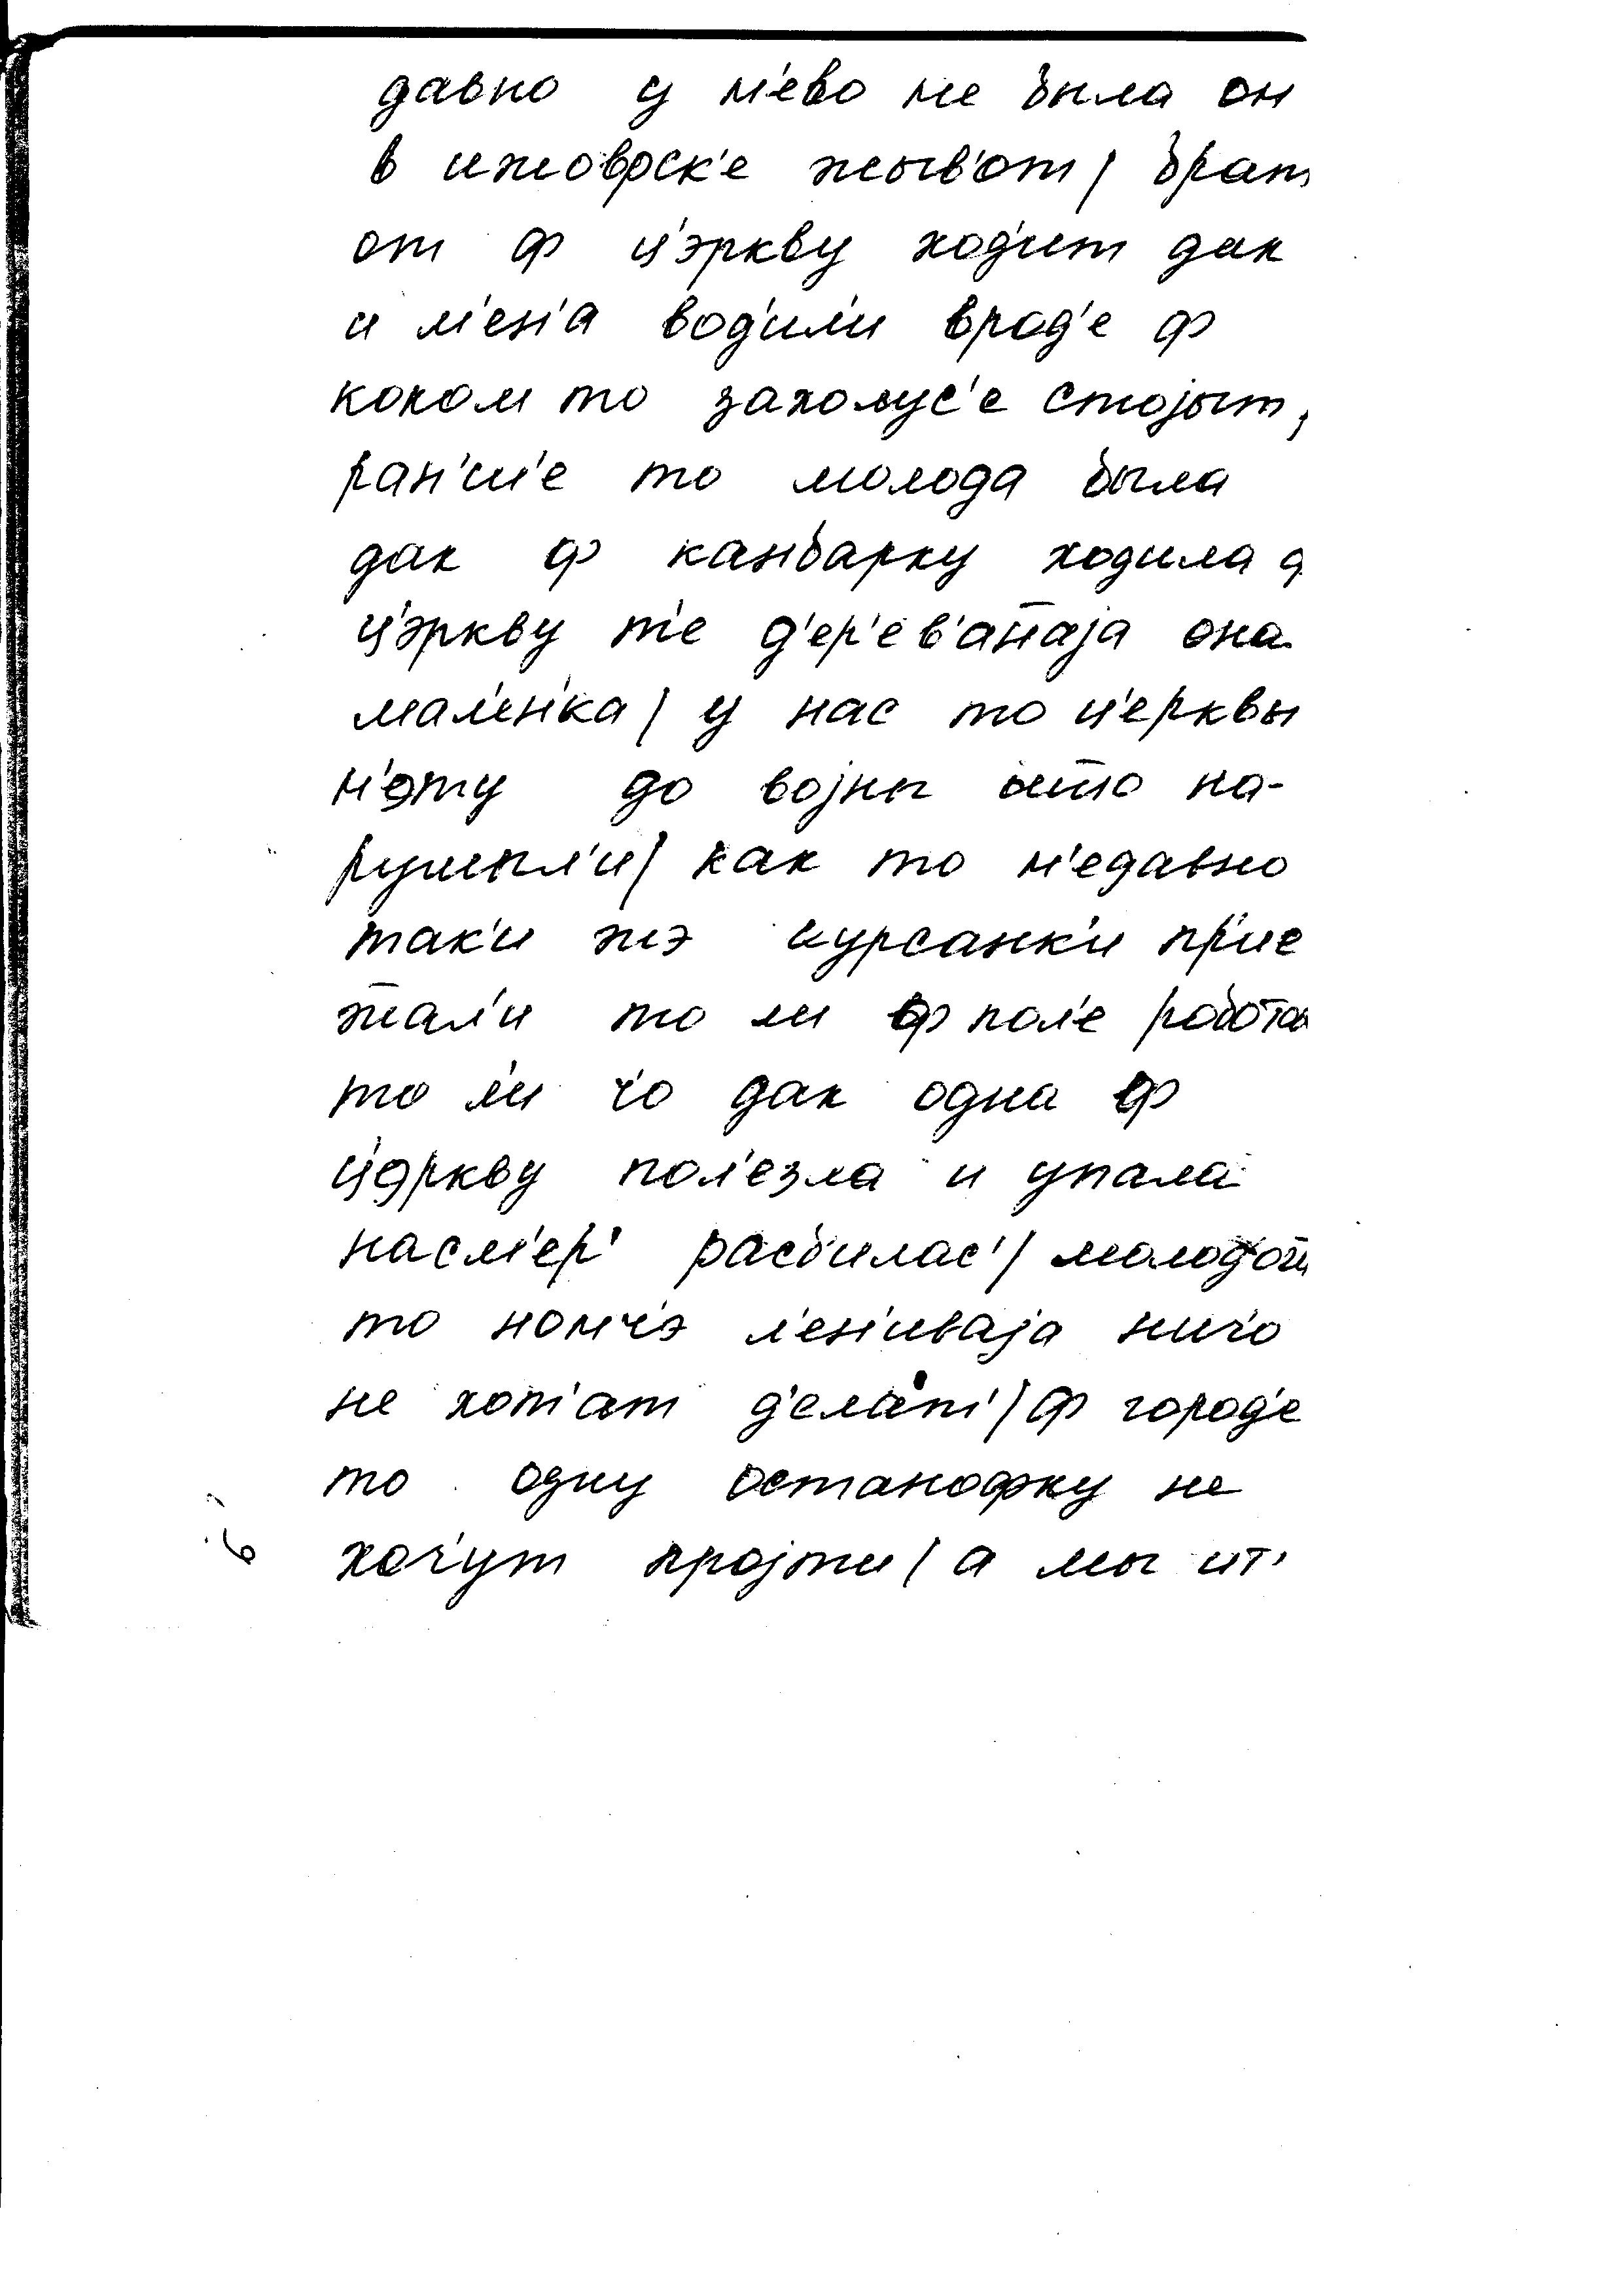 давно у н'ево не была он
в ижоврск'е жыв'от / брат
от ф ц'эркву ходит дак
и м'ен'а вод'ил'и врод'е ф
коком то захолус'е стојыт,
ран'ш'е то молода была
дак ф канбарку ходила
ц'эркву т'е д'ер'ев'анаја она
мал'ен'ка / у нас то ц'ерквы
н'эту до војны на-
рушыл'и / как то н'едавно
так'и жэ курсанк'и пр'ие
жал'и то ли ф пол'е робота
то л'и ч'о дак одна ф
ц'эркву пол'езла и упала
насм'ер' расб'илас' /
то ноны'э л'ен'иваја нич'о
не хот'ат д'елат' / ф город'е
то одну останофку не
хоч'ут пројти / а мы ит'
6